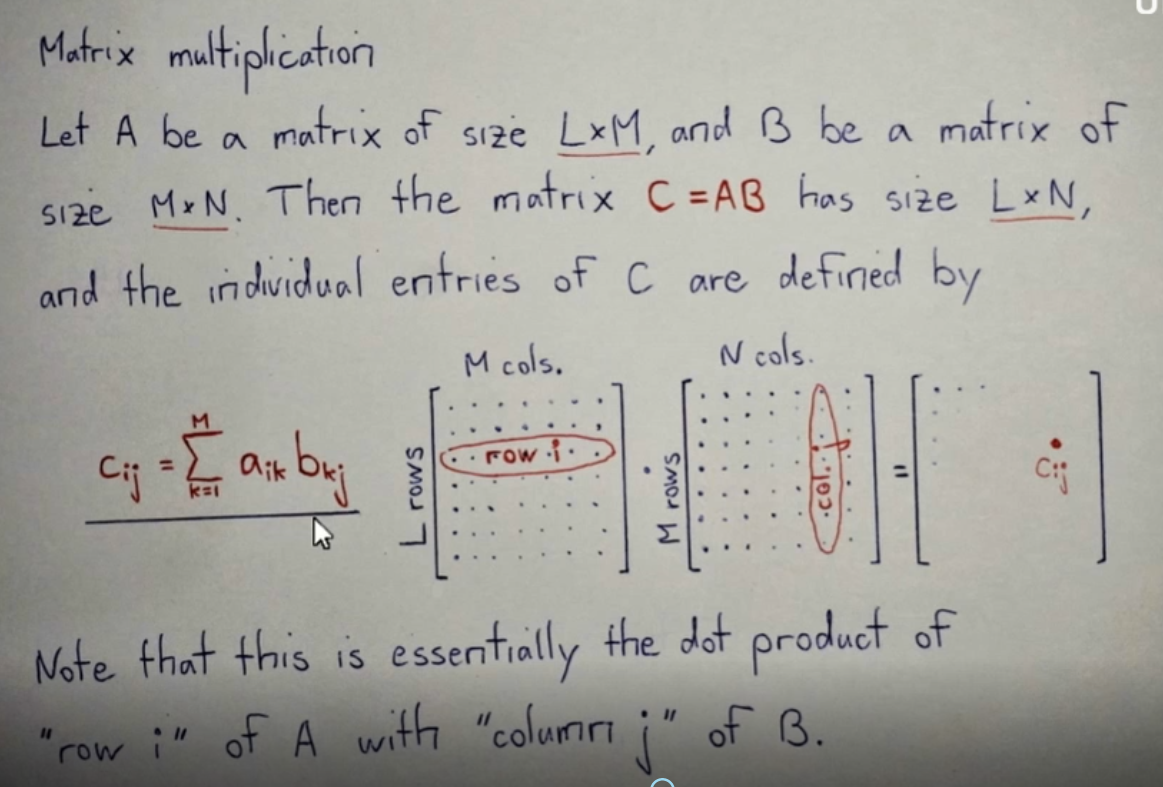 Matrix multiplication
Let A be a matrix of size L×M, and B be a matrix of
size M×N. Then the matrix C = AB has size L×N,
and the individual entries of C are defined by
M cols. N cols.
c_ij = Σ_{k=1}^{M} a_ik b_kj L rows row i · M rows col. j = c_ij
Note that this is essentially the dot product of
"row i" of A with "column j" of B.